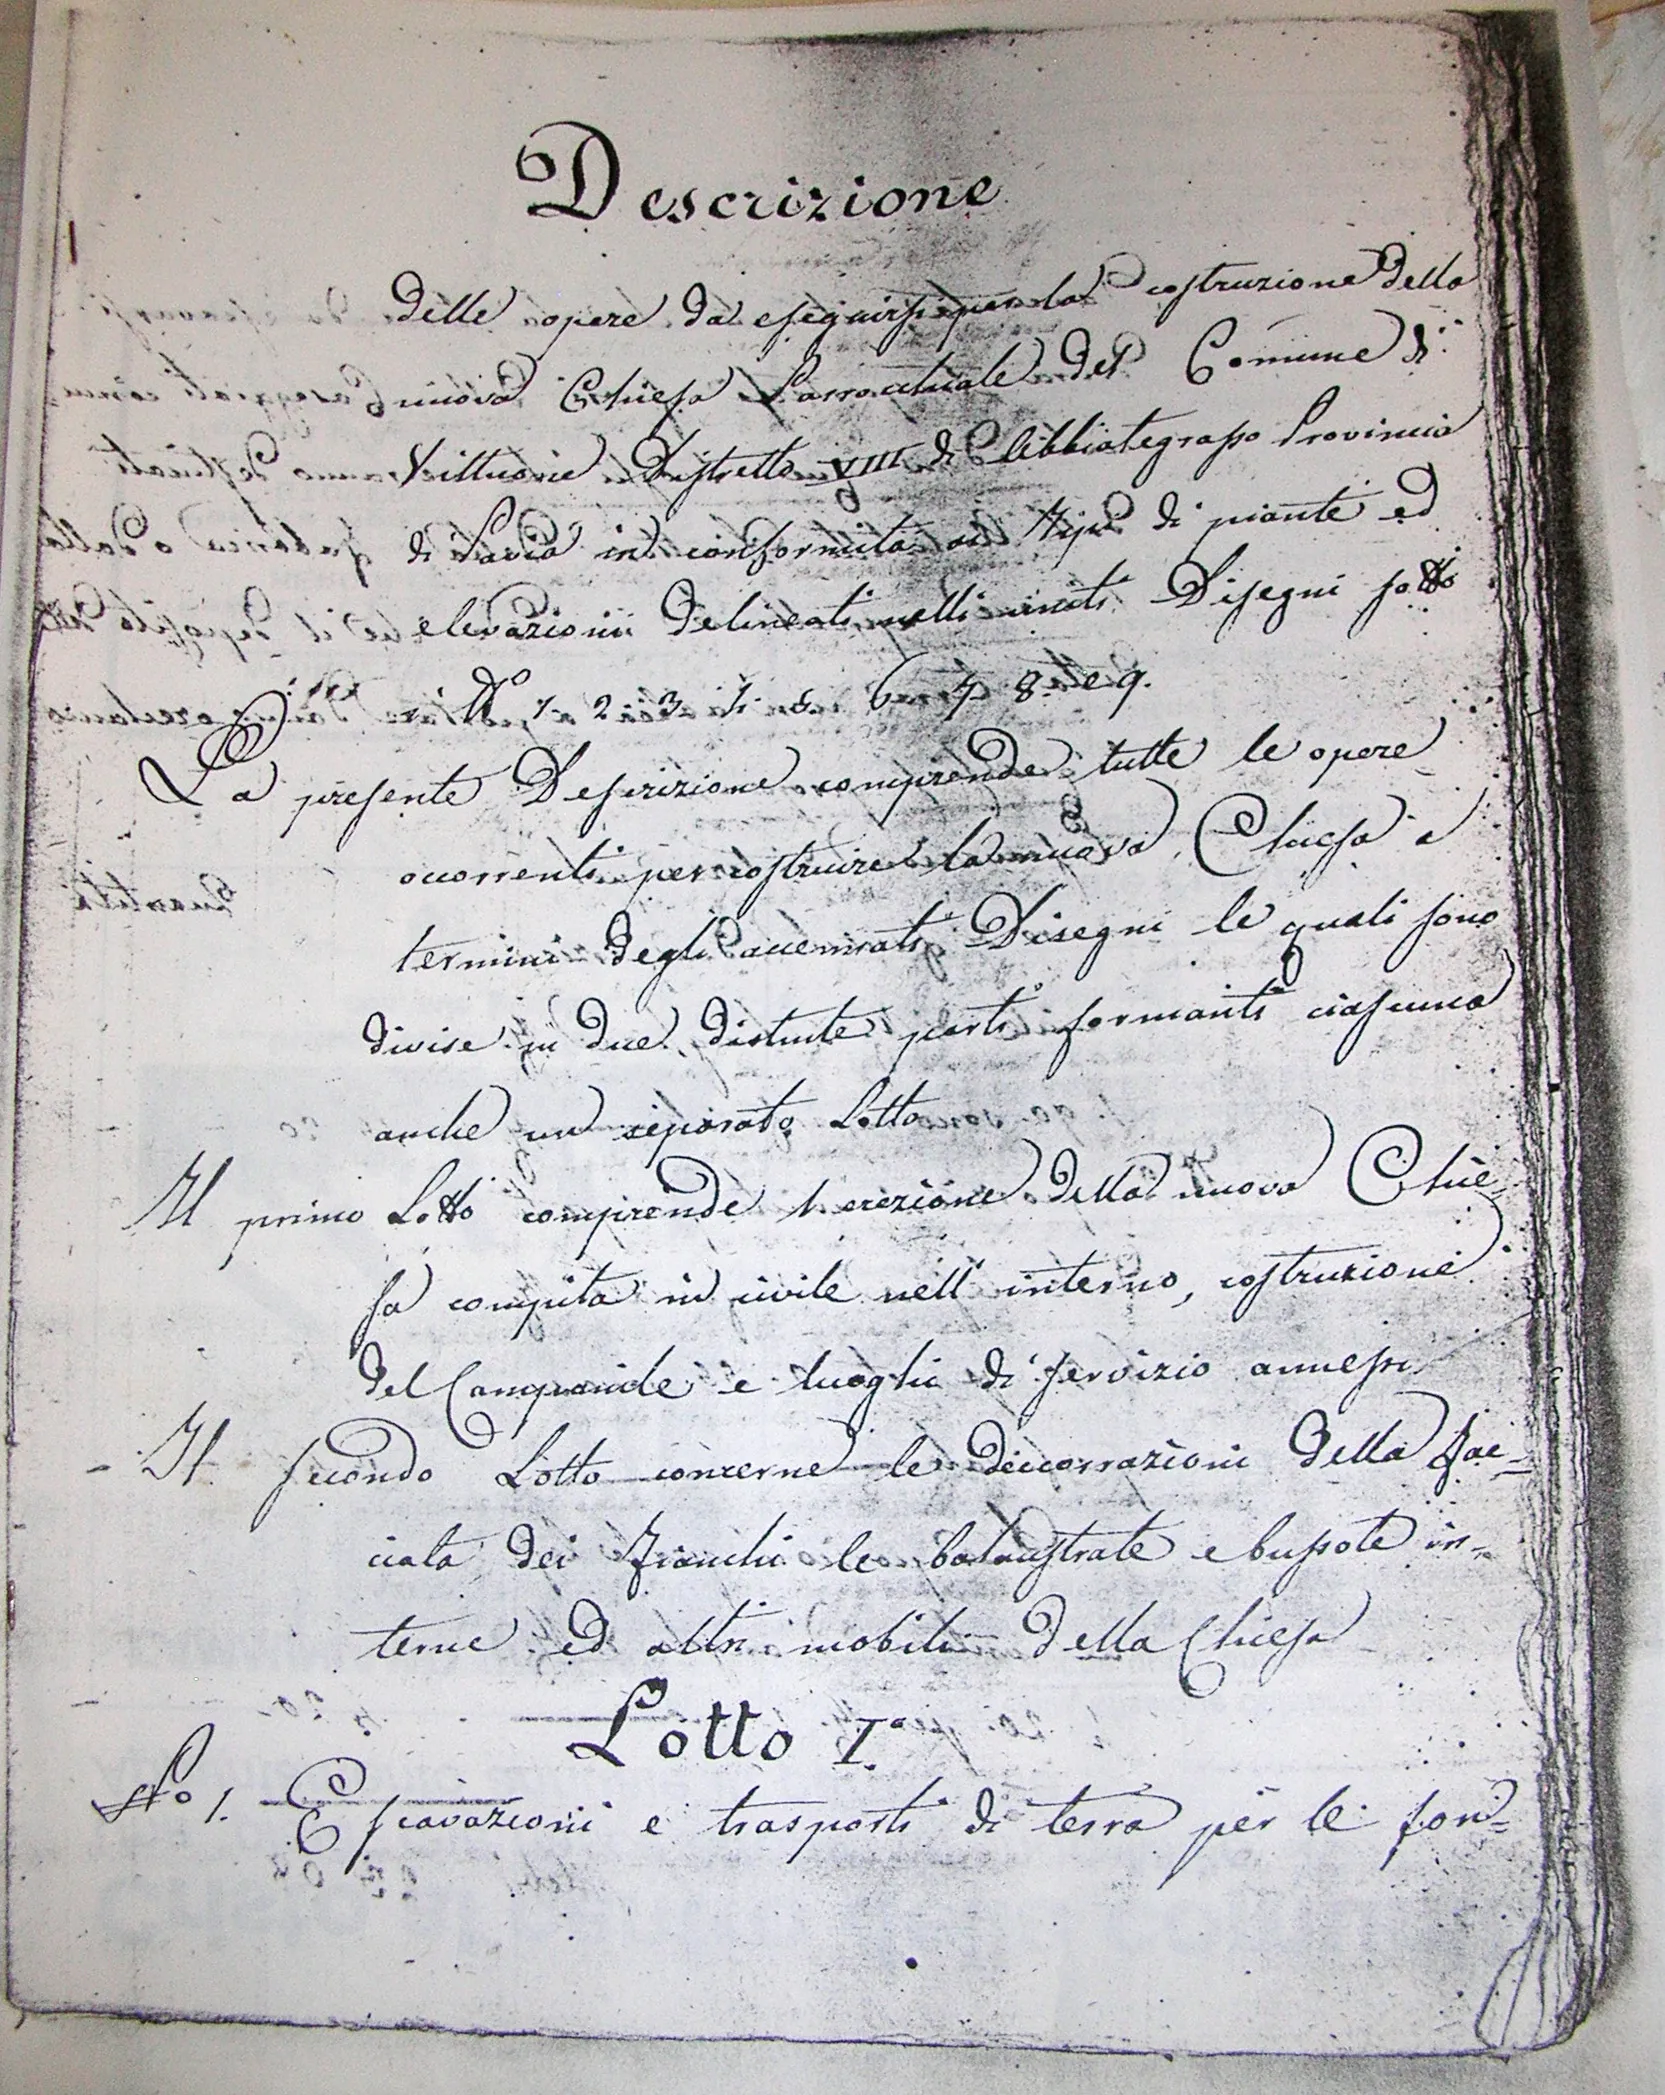 Descrizione
delle opere da eseguirsi per la costruzione della
nuova Chiesa Parrochiale del Comune di
Vittuone Distretto VIII di Abbiategrasso Provincia
di Pavia in conformità ai tipi di piante ed
elevazioni delineati nelli uniti Disegni sotto
N.o 1. 2. 3. 4. 5. 6. 7. 8. e 9.
La presente Descrizione comprende tutte le opere
occorrenti per costruire la nuova Chiesa a
termini degli accennati Disegni le quali sono
divise in due distinte parti formanti ciascuna
anche un separato Lotto
Il primo Lotto comprende l'erezione della nuova Chie-
sa compita in civile nell'interno, costruzione
del Campanile e luoghi di servizio annessi
- Il secondo Lotto concerne le deccorrazioni della fac=
ciata dei fianchi le balaustrate e bussole in-
terne ed altri mobili della Chiesa
Lotto I.o
No 1. Escavazioni e trasporti di terra per le fon=